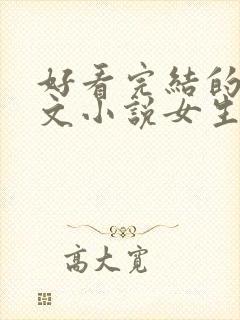 好看完結的
文小說女生
高大寬